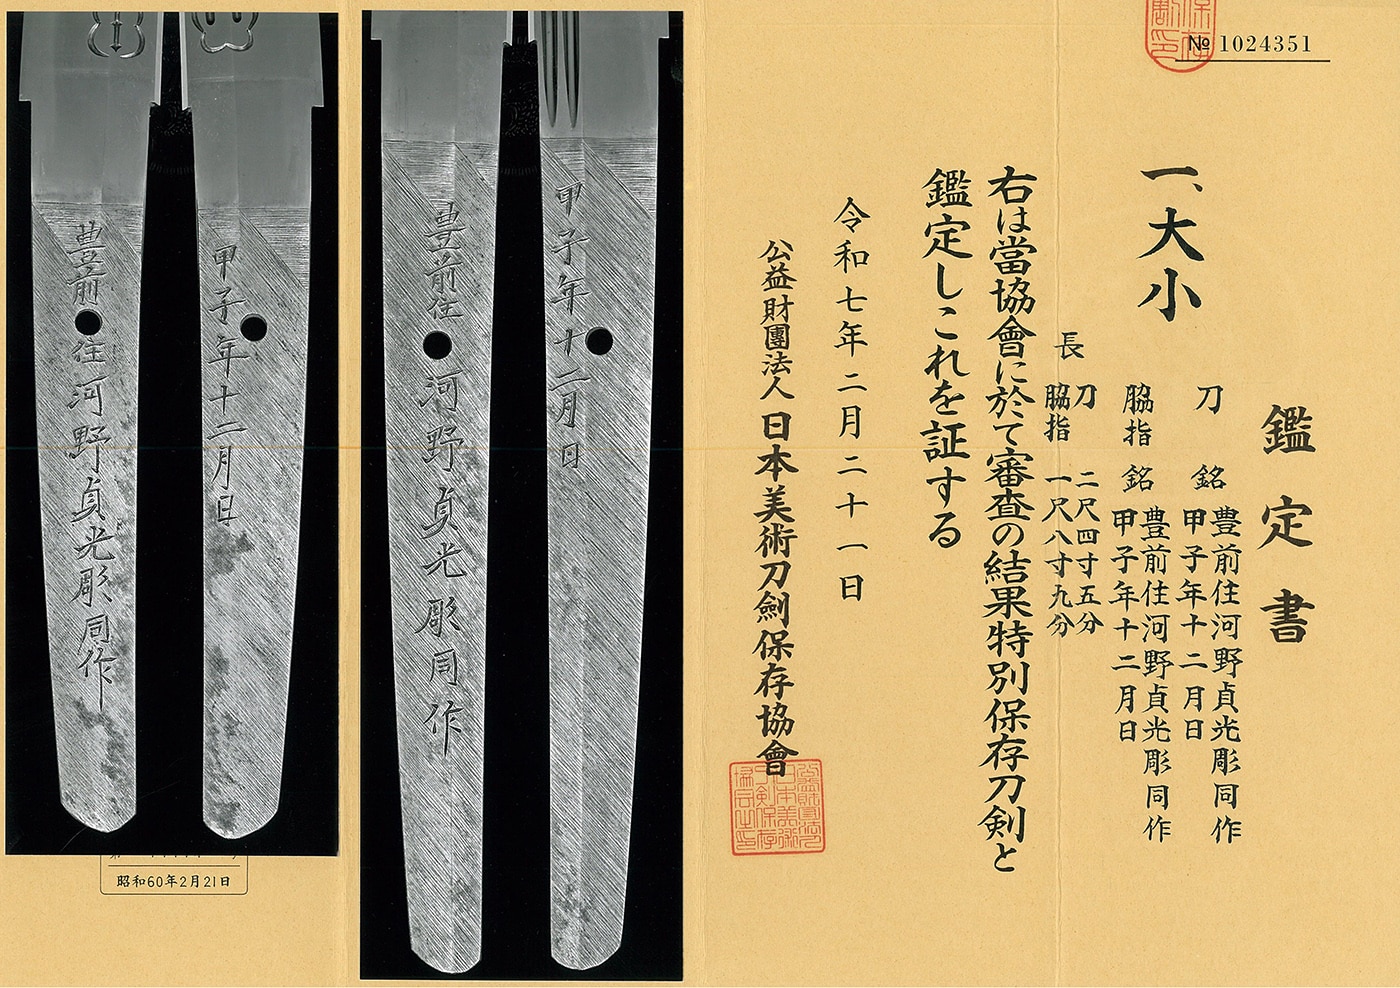 № 1024351
鑑定書
一、大小
刀 銘 豊前住河野貞光彫同作
甲子年十二月日
脇指 銘 豊前住河野貞光彫同作
甲子年十二月日
長 刀 二尺四寸五分
脇指 一尺八寸九分
右は當協會に於て審査の結果特別保存刀剣と
鑑定しこれを証する
令和七年二月二十一日
公益財團法人 日本美術刀劍保存協會
甲子年十二月日
豊前住河野貞光彫同作
甲子年十二月日
豊前住河野貞光彫同作
昭和60年2月21日